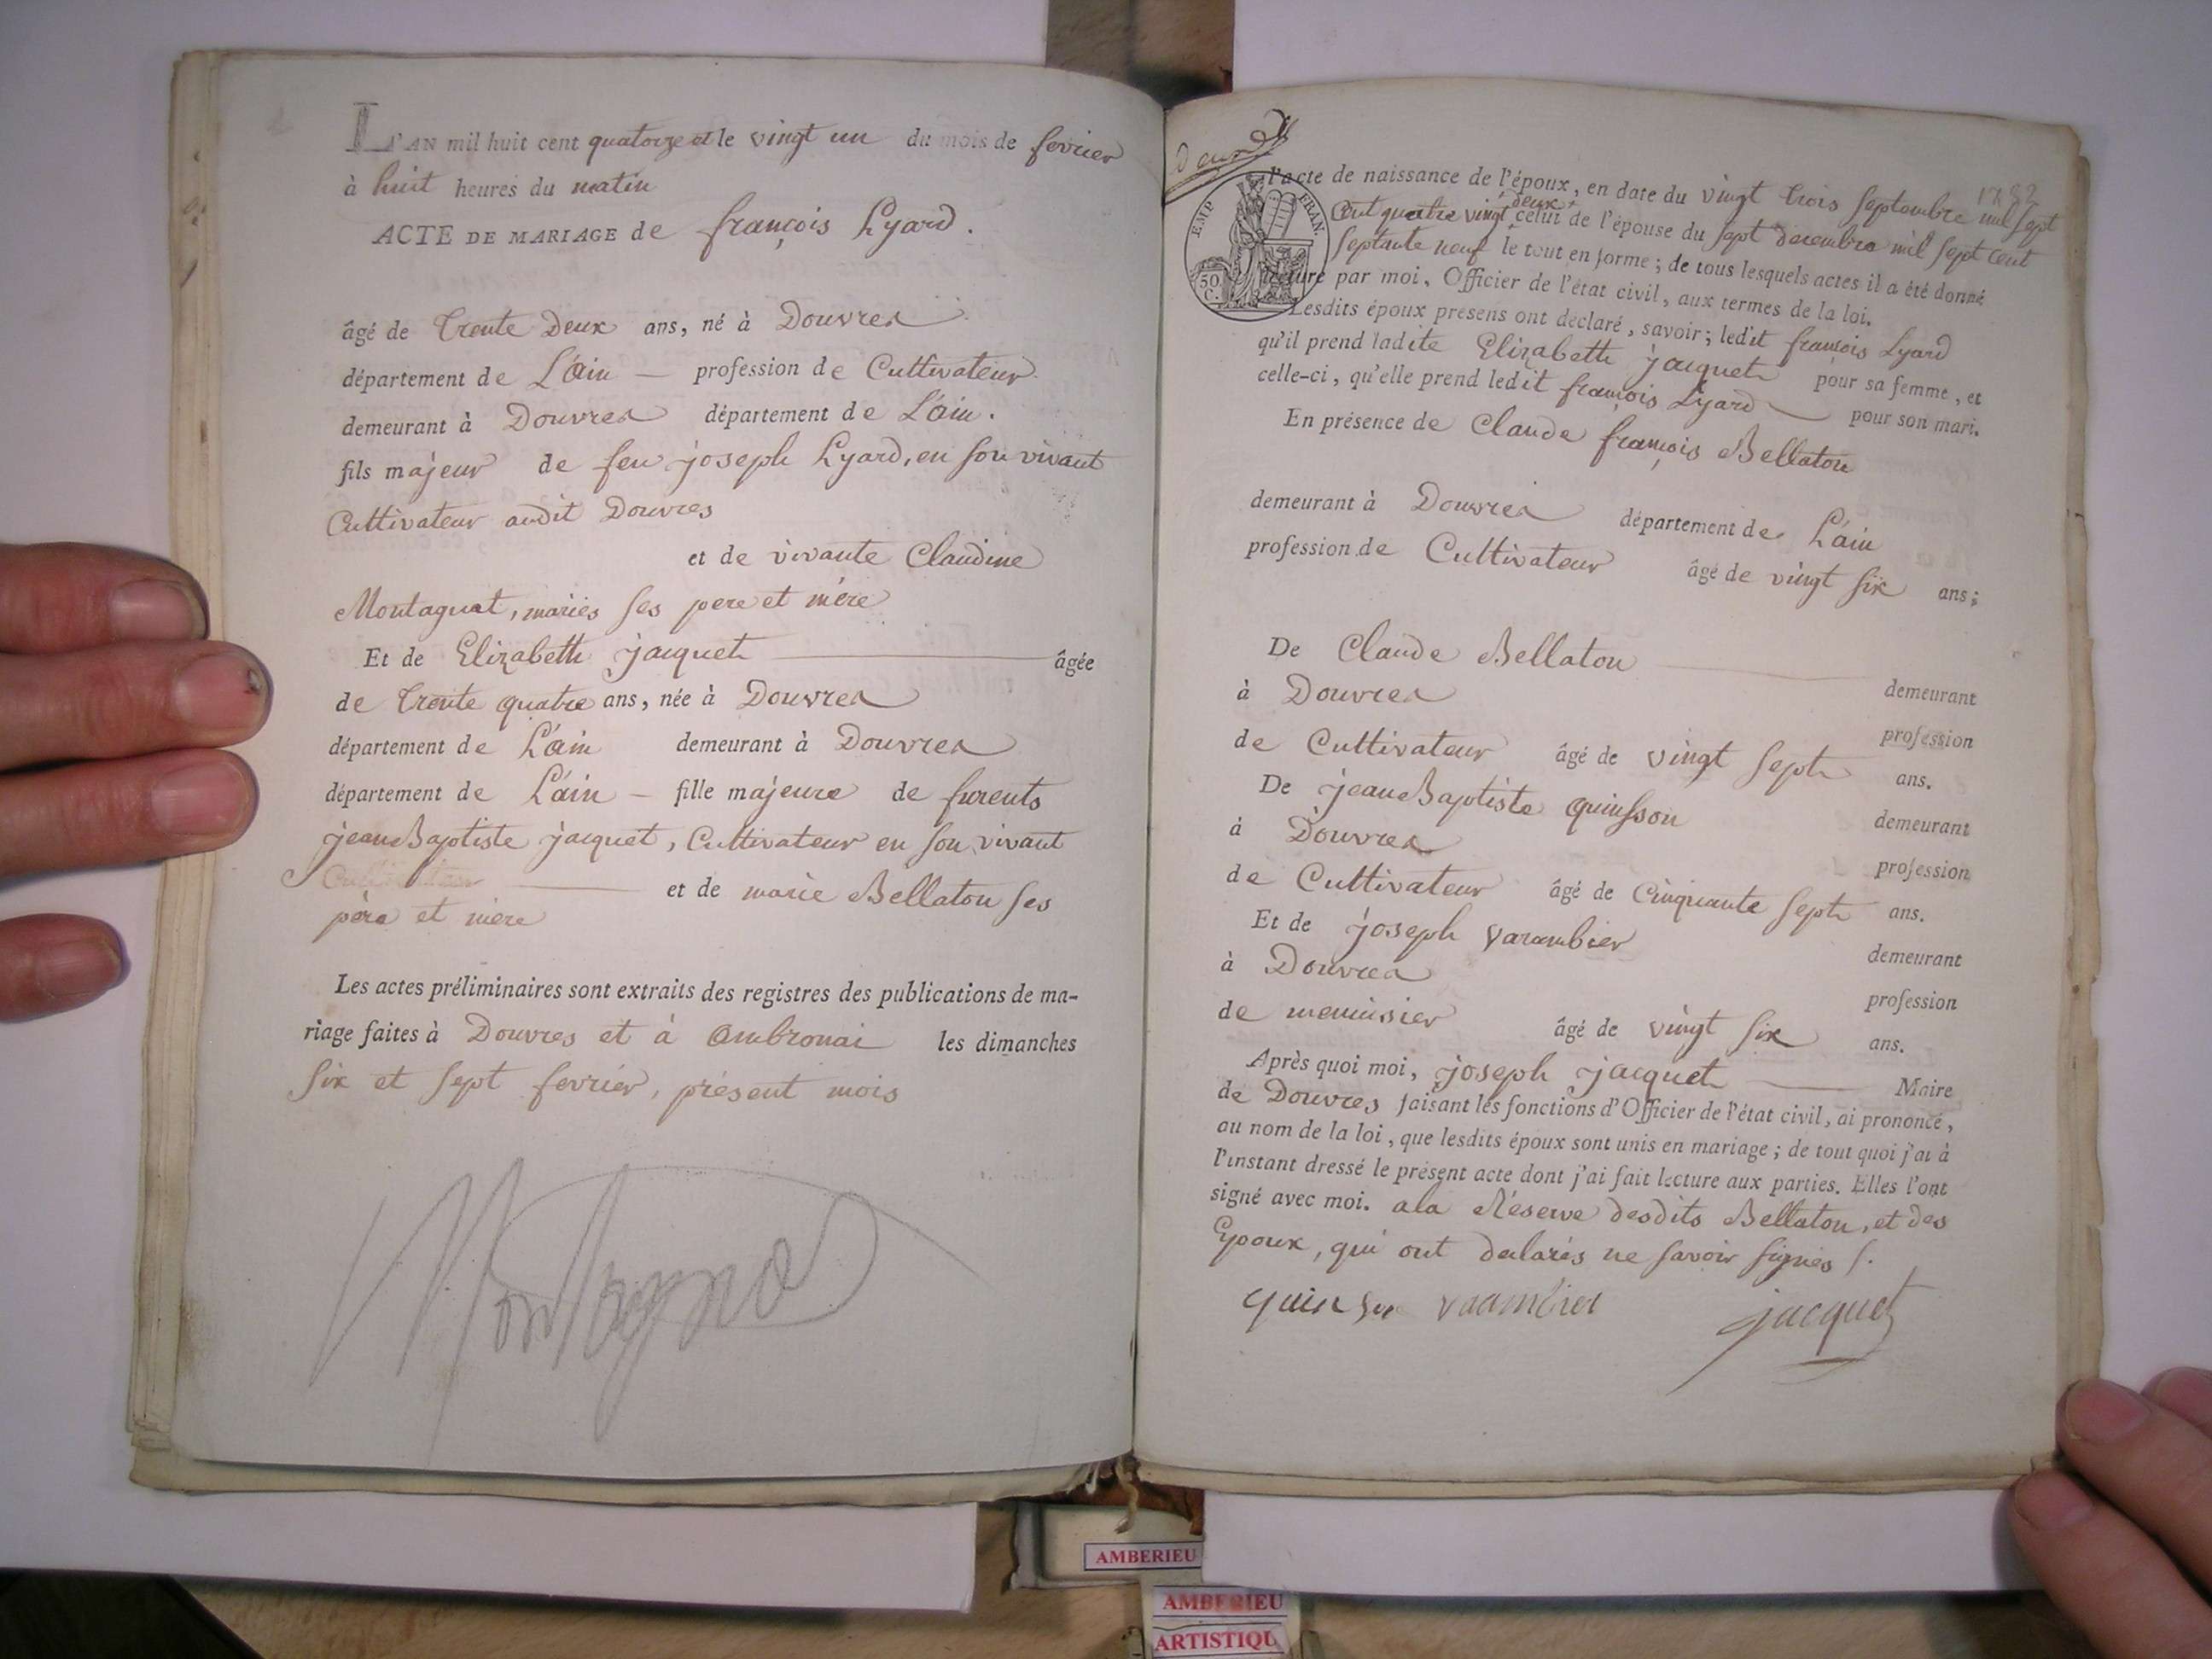 L'AN mil huit cent quatorze et le vingt un du mois de fevrier
à huit heures du matin
ACTE DE MARIAGE de françois Lyard.
âgé de trente Deux ans, né à Douvres
département de L'ain — profession de Cultivateur
demeurant à Douvres département de L'ain.
fils majeur de feu joseph Lyard, en son vivant
Cultivateur audit Douvres
et de vivante Claudine
Montagnat, mariés ses pere et mére
Et de Elizabeth jacquet âgée
de trente quatre ans, née à Douvres
département de L'ain demeurant à Douvres
département de L'ain — fille majeure de furents
jean Baptiste jacquet, Cultivateur en son vivant
Cultivateur et de marie Bellaton ses
père et mere
Les actes préliminaires sont extraits des registres des publications de ma-
riage faites à Douvres et à Ambronai les dimanches
six et sept fevrier, présent mois
Montagnat
deux
EMP. FRAN.
50 C.
1782
l'acte de naissance de l'époux, en date du vingt trois septembre mil sept
Cent quatre vingt deux celui de l'épouse du sept decembre mil sept cent
septante neuf le tout en forme; de tous lesquels actes il a été donné
lecture par moi, Officier de l'état civil, aux termes de la loi.
Lesdits époux présens ont déclaré, savoir; ledit francois Lyard
qu'il prend ladite Elizabeth jacquet pour sa femme, et
celle-ci, qu'elle prend ledit françois Lyard — pour son mari.
En présence de Claude françois Bellaton
demeurant à Douvres département de L'ain
profession de Cultivateur âgé de vingt six ans;
De Claude Bellaton demeurant
à Douvres profession
de Cultivateur âgé de vingt sept ans.
De jean Baptiste quinsson demeurant
à Douvres profession
de Cultivateur âgé de Cinquante sept ans.
Et de joseph varambier demeurant
à Douvres profession
de menuisier âgé de vingt six ans.
Après quoi moi, joseph jacquet — Maire
de Douvres faisant les fonctions d'Officier de l'état civil, ai prononcé,
au nom de la loi, que lesdits époux sont unis en mariage; de tout quoi j'ai à
l'instant dressé le présent acte dont j'ai fait lecture aux parties. Elles l'ont
signé avec moi. a la Réserve desdits Bellaton, et des
Epoux, qui ont dalarés ne savoir signés /.
quinson varambier jacquet
AMBERIEU
AMBERIEU
ARTISTIQU